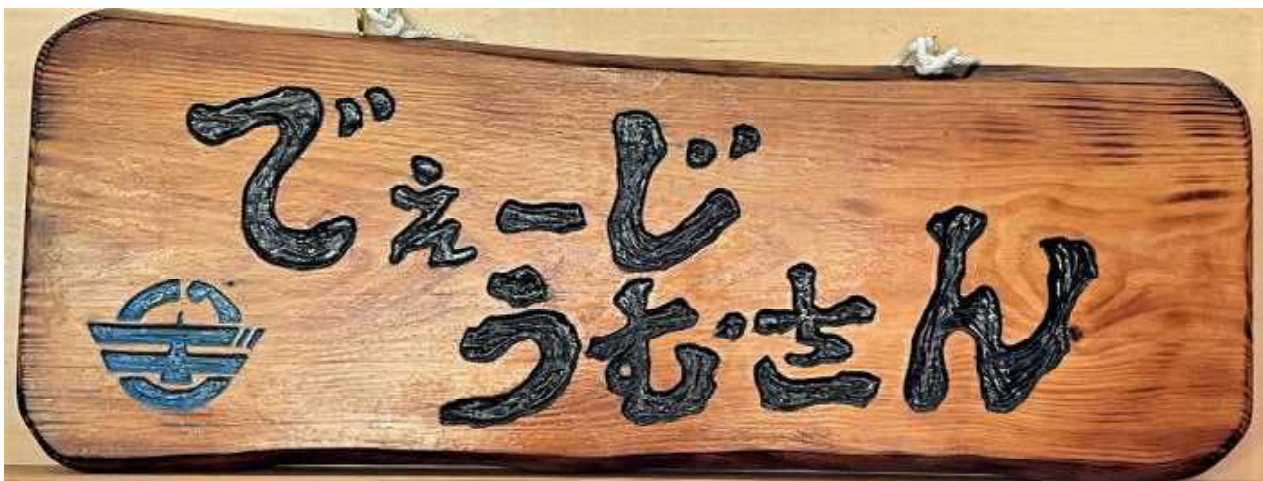 でぇーじ
うむさん